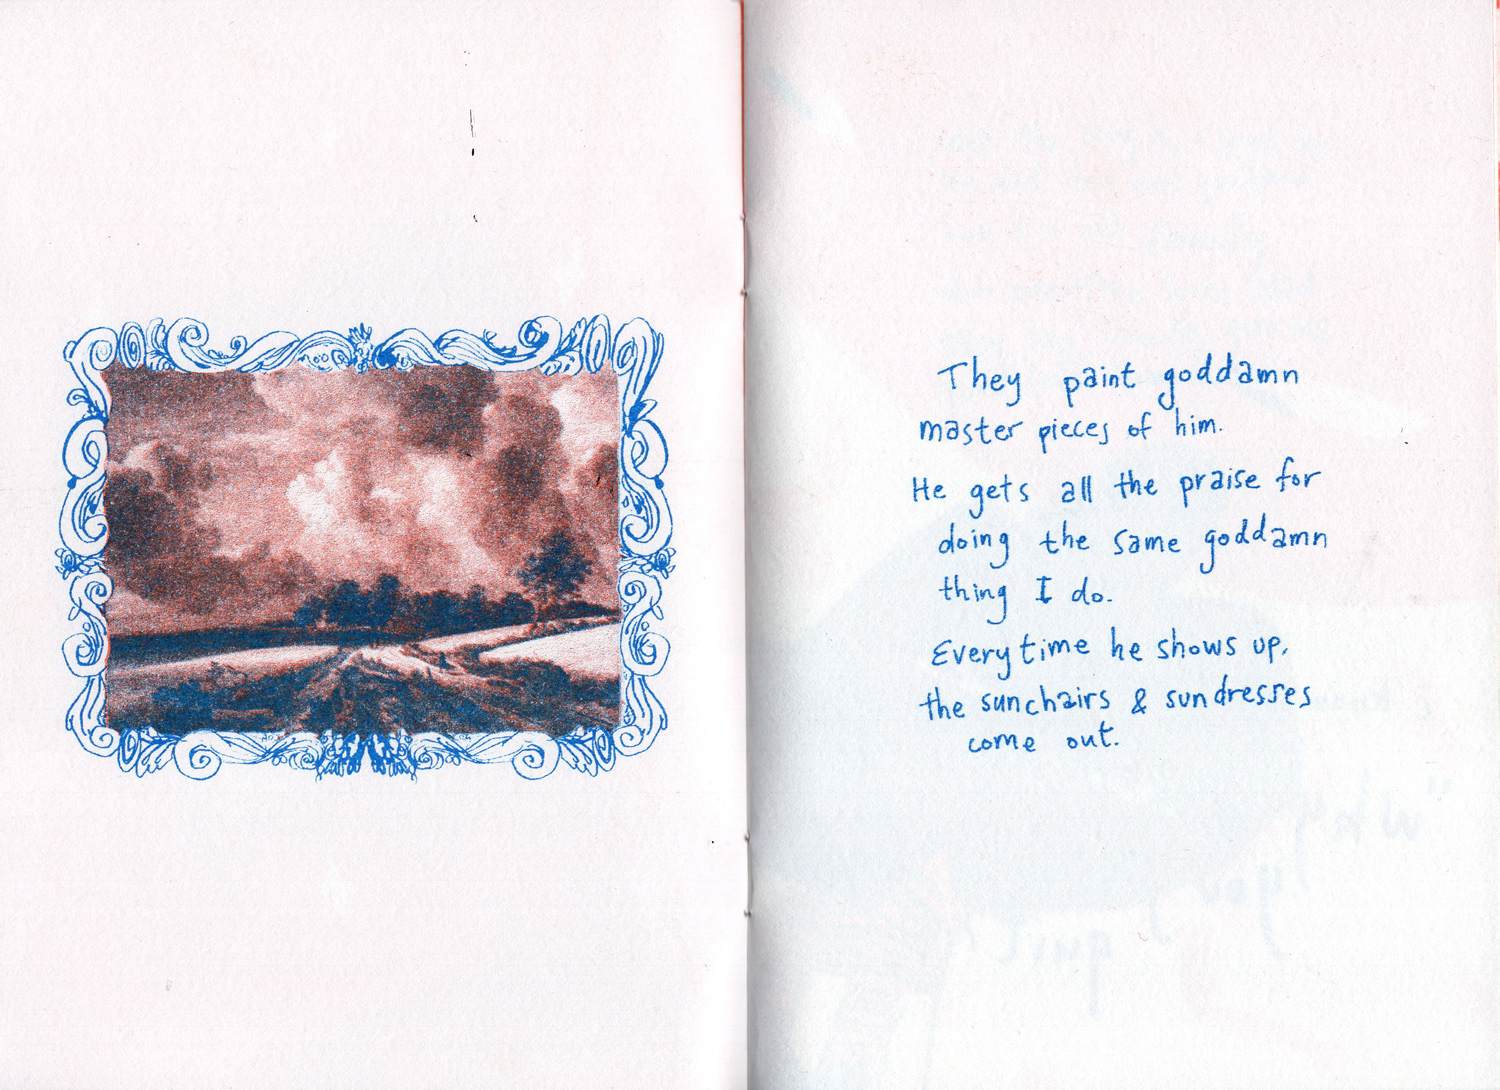 They paint goddamn
master pieces of him.
He gets all the praise for
doing the same goddamn
thing I do.
Everytime he shows up,
the sunchairs & sundresses
come out.